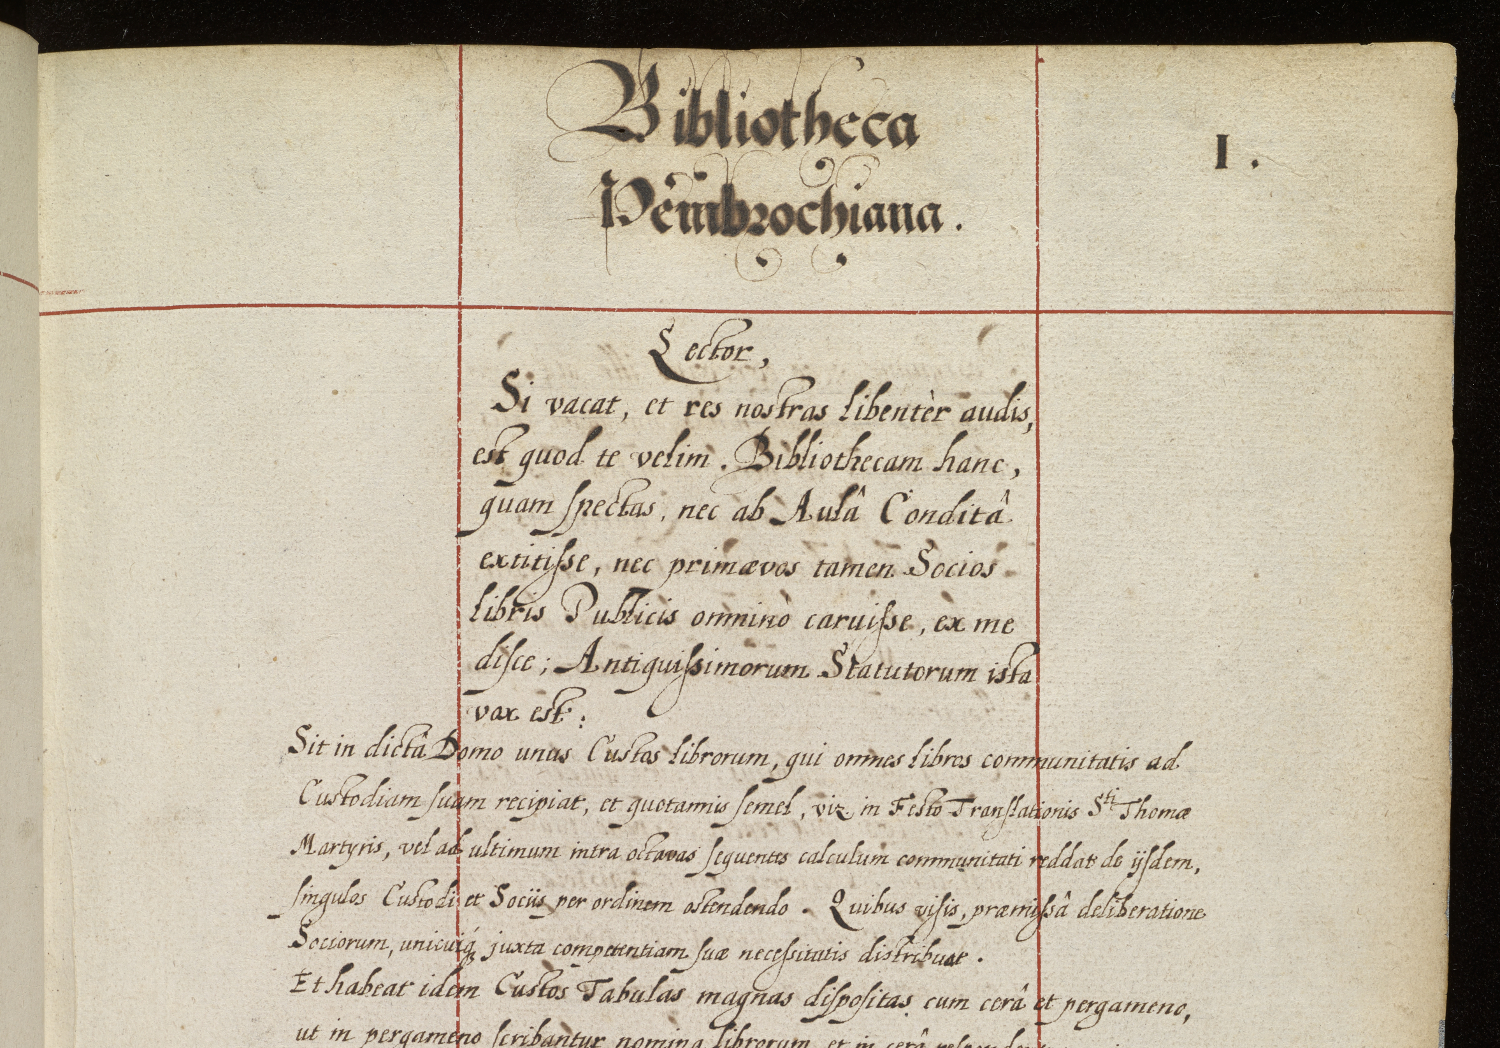 Bibliotheca
Pembrochiana.
I.
Lector,
Si vacat, et res nostras libentèr audis,
est quod te velim. Bibliothecam hanc,
quam spectas, nec ab Aulâ Conditâ
extitisse, nec primævos tamen Socios
libris Publicis omninò caruisse, ex me
disce; Antiquissimorum Statutorum ista
vox est:
Sit in dictâ Domo unus Custos librorum, qui omnes libros communitatis ad
Custodiam suam recipiat, et quotannis semel, viz in Festo Translationis Sti Thomæ
Martyris, vel ad ultimum intra octavas sequentes calculum communitati reddat de ijsdem,
singulos Custodi et Sociis per ordinem ostendendo. Quibus visis, præmissâ deliberatione
Sociorum, unicuiq juxta competentiam suæ necessitatis distribuat.
Et habeat idem Custos Tabulas magnas dispositas cum cerâ et pergameno,
ut in pergameno scribantur nomina librorum, et in cerâ